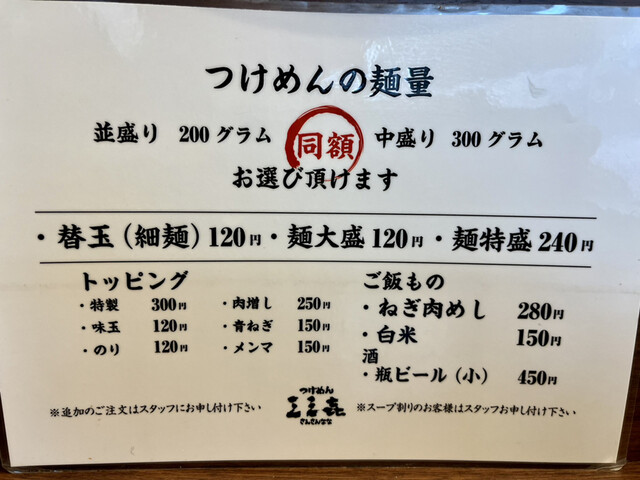 つけめんの麺量
並盛り 200グラム 同額 中盛り 300グラム
お選び頂けます
・替玉(細麺)120円・麺大盛120円・麺特盛240円
トッピング
・特製 300円 ・肉増し 250円
・味玉 120円 ・青ねぎ 150円
・のり 120円 ・メンマ 150円
ご飯もの
・ねぎ肉めし 280円
・白米 150円
酒
・瓶ビール(小) 450円
※追加のご注文はスタッフにお申し付け下さい
つけめん
三三㐂
さんさんなな
※スープ割りのお客様はスタッフお申し付け下さい